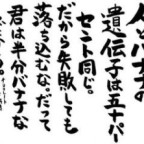 人とバナナの
遺伝子は五十パー
セント同じ。
だから失敗しても
落ち込むな。だって
君は半分バナナな